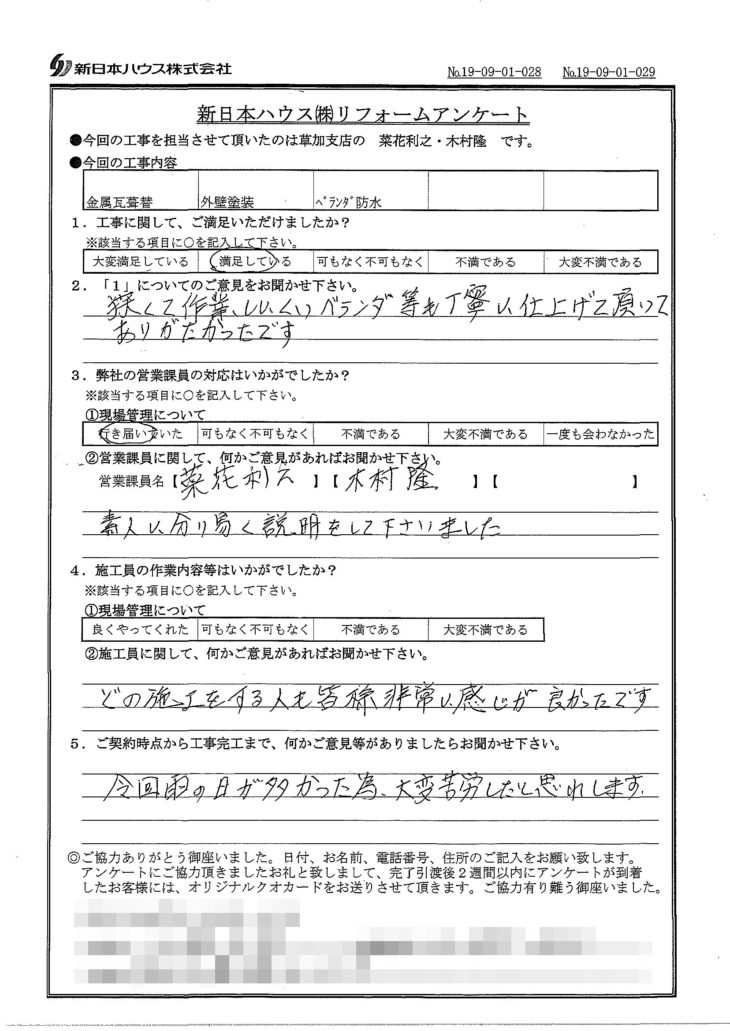 新日本ハウス株式会社
№19-09-01-028 №19-09-01-029
新日本ハウス㈱リフォームアンケート
●今回の工事を担当させて頂いたのは草加支店の 菜花利之・木村隆 です。
●今回の工事内容
金属瓦葺替 外壁塗装 ﾍﾞﾗﾝﾀﾞ防水
1．工事に関して、ご満足いただけましたか？
※該当する項目に○を記入して下さい。
大変満足している 満足している 可もなく不可もなく 不満である 大変不満である
2．「1」についてのご意見をお聞かせ下さい。
狭くて作業しにくいベランダ等も丁寧に仕上げて頂いて
ありがたかったです
3．弊社の営業課員の対応はいかがでしたか？
※該当する項目に○を記入して下さい。
①現場管理について
行き届いていた 可もなく不可もなく 不満である 大変不満である 一度も会わなかった
②営業課員に関して、何かご意見があればお聞かせ下さい。
営業課員名【菜花利之】【木村隆】【 】
素人に分り易く説明をして下さいました
4．施工員の作業内容等はいかがでしたか？
※該当する項目に○を記入して下さい。
①現場管理について
良くやってくれた 可もなく不可もなく 不満である 大変不満である
②施工員に関して、何かご意見があればお聞かせ下さい。
どの施工をする人も皆様非常に感じが良かったです
5．ご契約時点から工事完工まで、何かご意見等がありましたらお聞かせ下さい。
今回雨の日が多かった為、大変苦労したと思れします.
◎ご協力ありがとう御座いました。日付、お名前、電話番号、住所のご記入をお願い致します。
アンケートにご協力頂きましたお礼と致しまして、完了引渡後２週間以内にアンケートが到着
したお客様には、オリジナルクオカードをお送りさせて頂きます。ご協力有り難う御座いました。